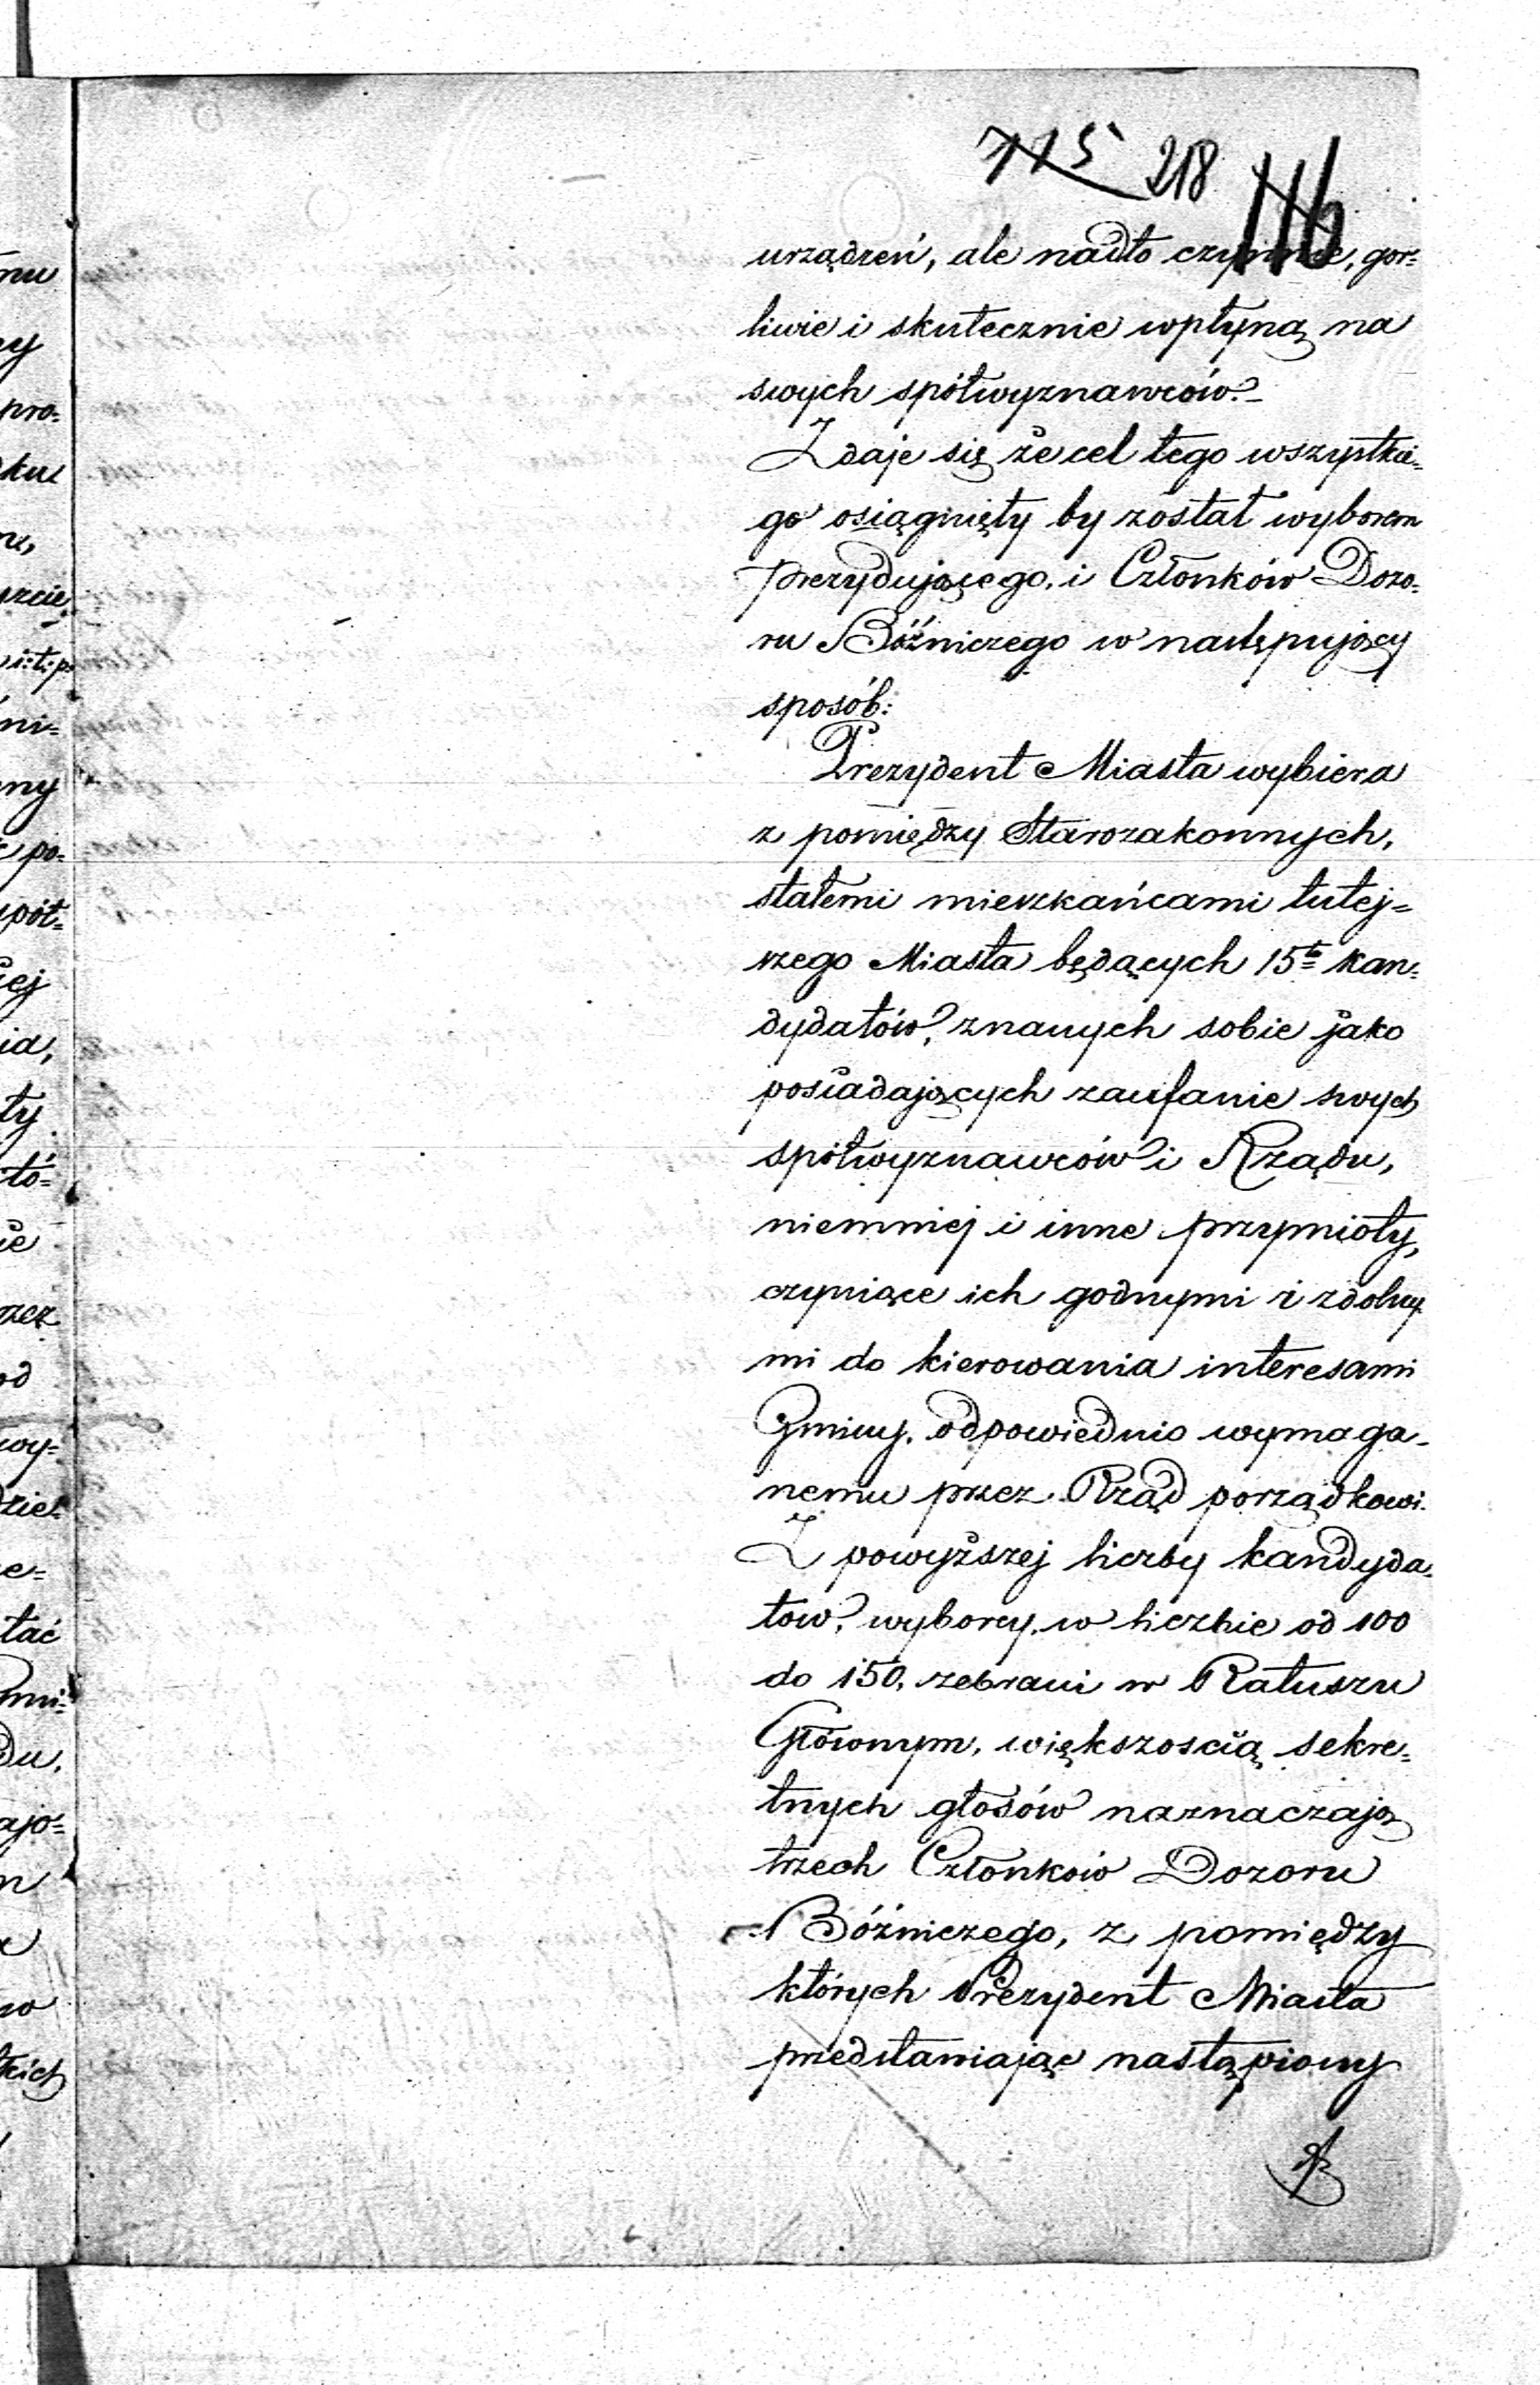 115 218 116
urządzeń, ale nadto czynnie, gor=
liwie i skutecznie wpłyną na
swych spółwyznawców.=
Zdaje się że cel tego wszystkie=
go osiągnięty by został wyborem
prezydującego, i Członków Dozo=
ru Bóźniczego w następujący
sposób:
Prezydent Miasta wybiera
z pomiędzy Starozakonnych,
stałemi mieszkańcami tutej=
szego Miasta będących 15tu kan=
dydatów, znanych sobie jako
posiadających zaufanie swych
spółwyznawców i Rządu,
niemniej i inne przymioty,
czyniące ich godnymi i zdolny=
mi do kierowania interesami
Gminy, odpowiednio wymaga=
nemu przez Rząd porządkowi.
Z powyższej liczby kandyda=
tow, wyborcy, w liczbie od 100
do 150, zebrani w Ratuszu
Głównym, większoscią sekre=
tnych głosów naznaczają
trzech Członków Dozoru
Bóźniczego, z pomiędzy
których Prezydent Miasta
przedstawiając nastąpiony
mu
pro=
ku
i:t:p:
ni=
ny
po=
spół=
ej
ia,
ty
tó=
ie
rzez
od
wy=
dzie=
e=
tać
Gmi=
du,
ają=